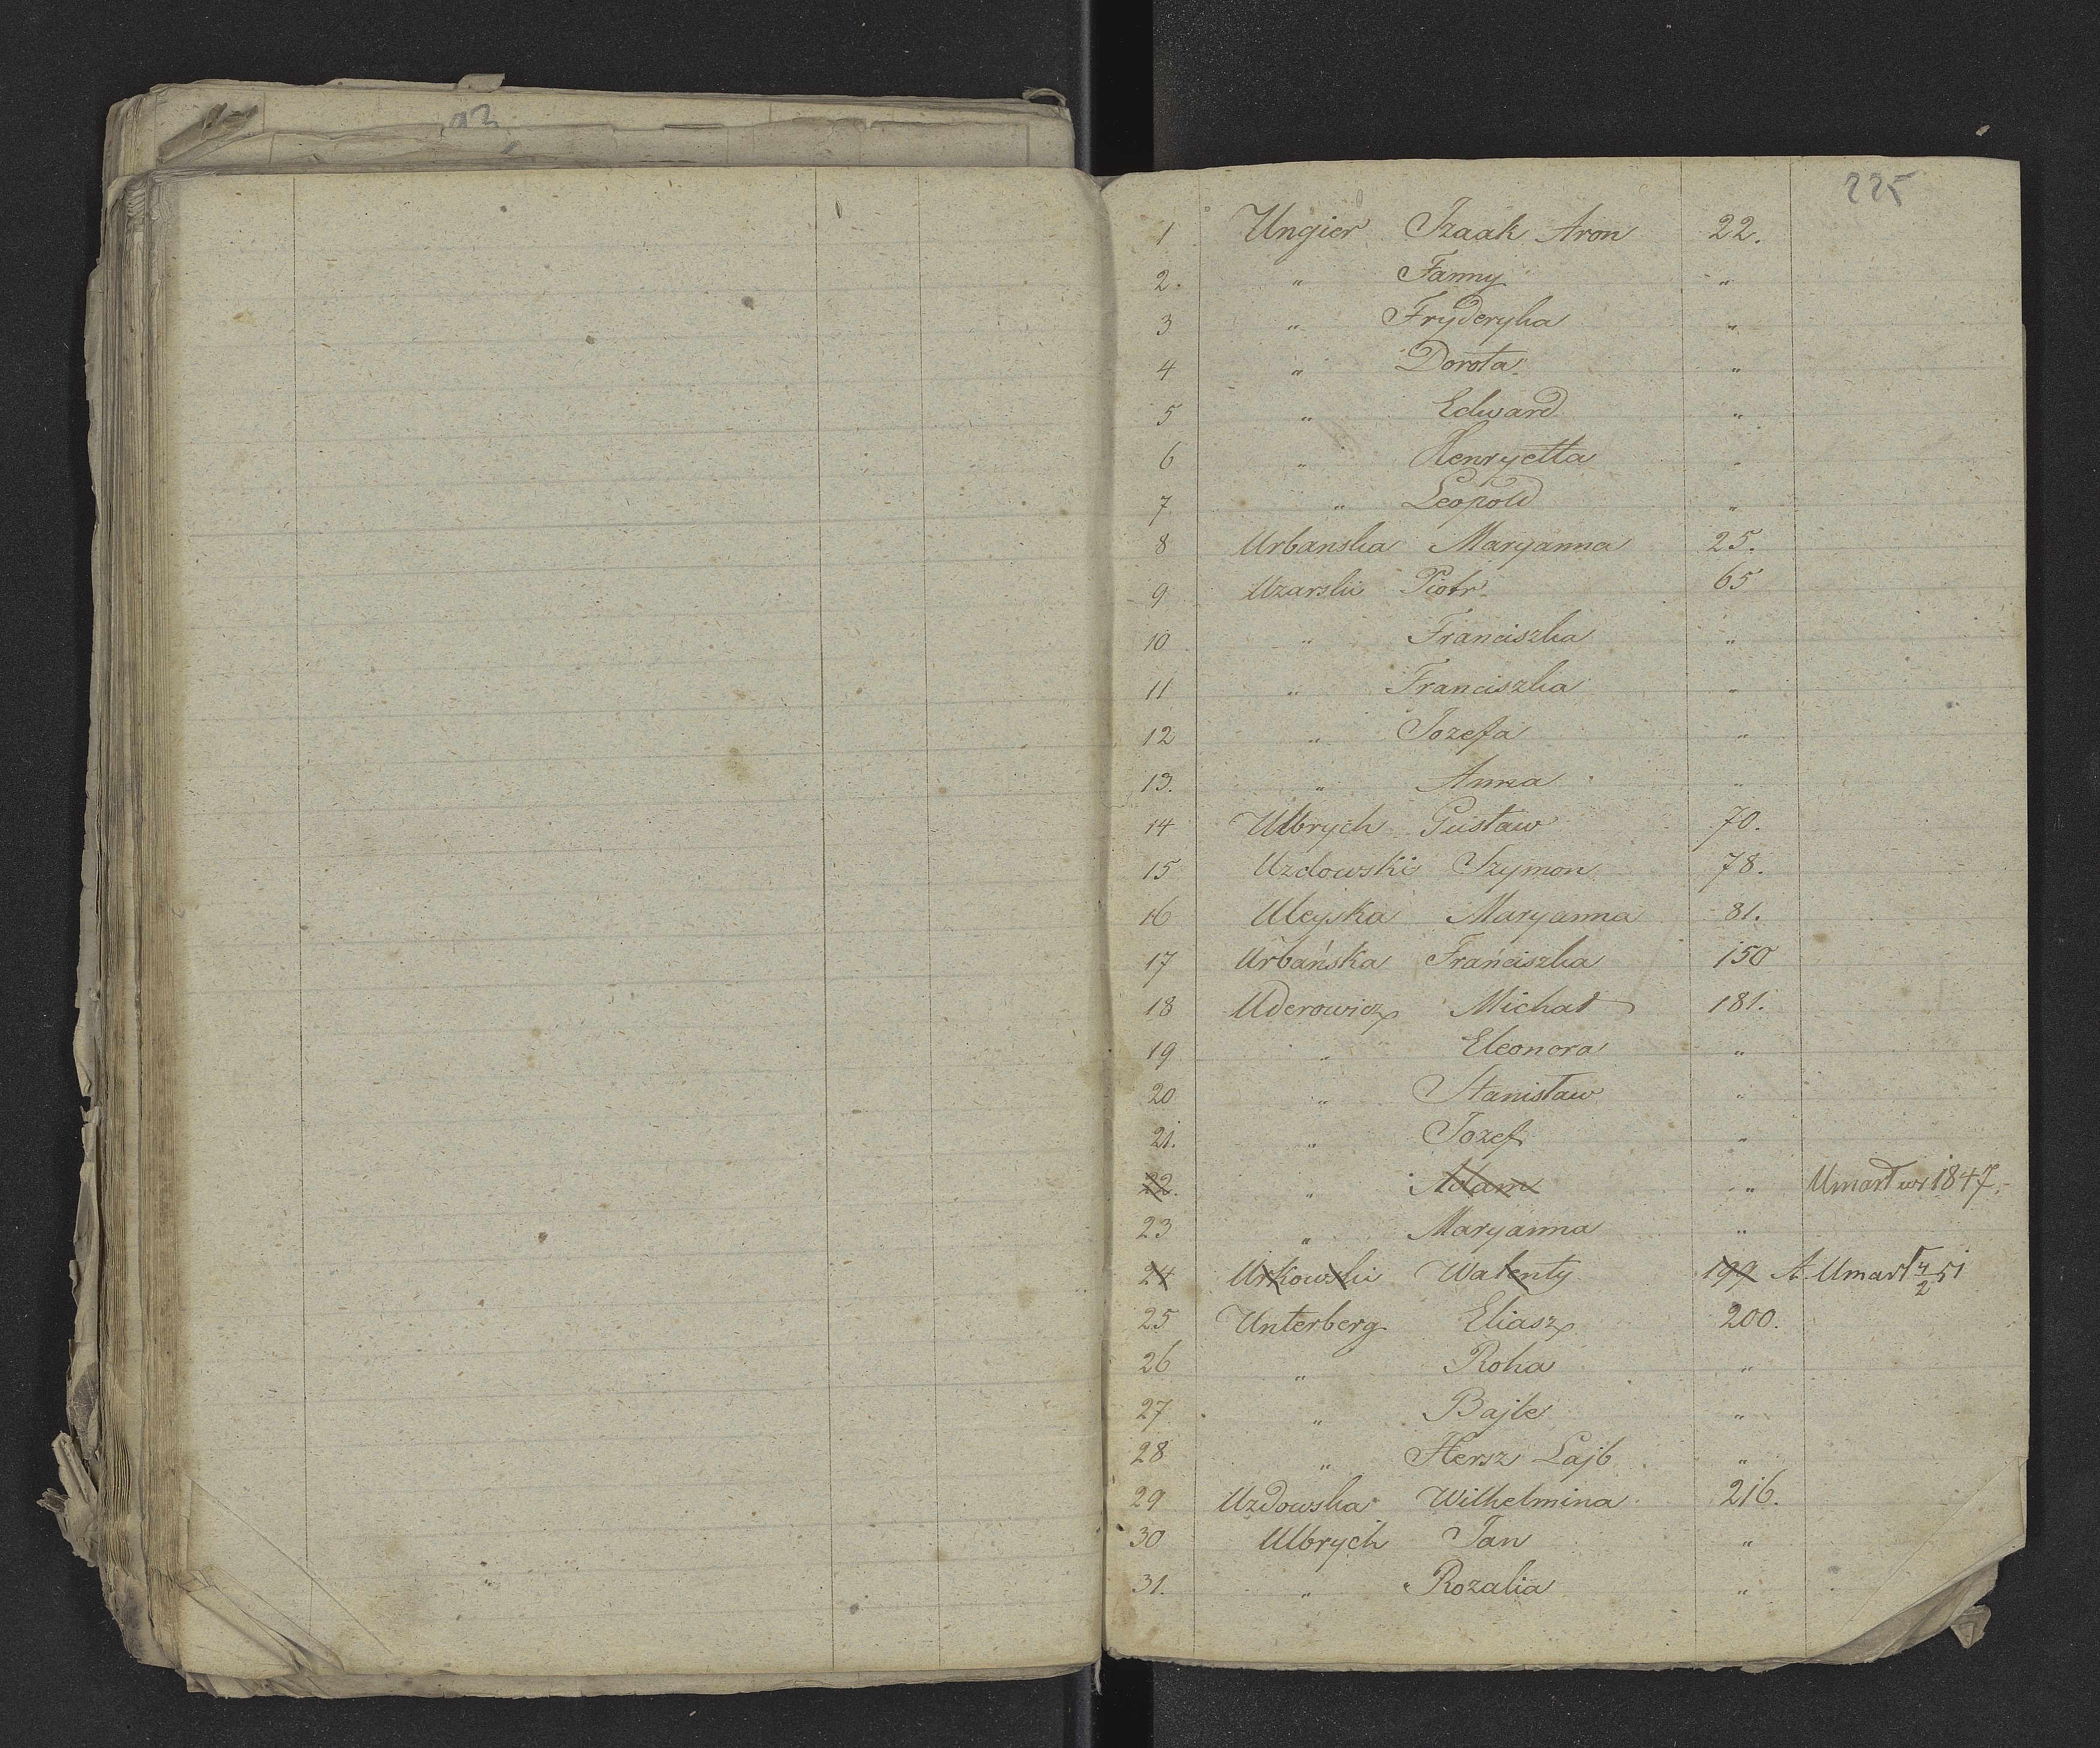 93
225
1 Ungier Izaak Aron 22.
2. " Fanny "
3 " Fryderyka "
4 " Dorota "
5 " Edward "
6 " Henryetta "
7 " Leopold "
8 Urbanska Maryanna 25.
9 Uzarski Piotr 65
10 " Franciszka "
11 " Franciszka "
12 " Jozefa "
13. " Anna "
14 Ulbrych Gustaw 70.
15 Uzdowski Szymon 78.
16 Uleyska Maryanna 81.
17 Urbańska Franciszka 150
18 Uderowicz Michał 181.
19 " Eleonora "
20 " Stanisław "
21. " Jozef "
22. " Adam " Umarł w 1847.
23 " Maryanna "
24 Urkowski Walenty 199 A. Umarł 4/2 51
25 Unterberg Eliasz 200.
26 " Roha "
27 " Bajle "
28 " Hersz Lajb "
29 Uzdowska Wilhelmina 216.
30 Ulbrych Jan "
31. " Rozalia "